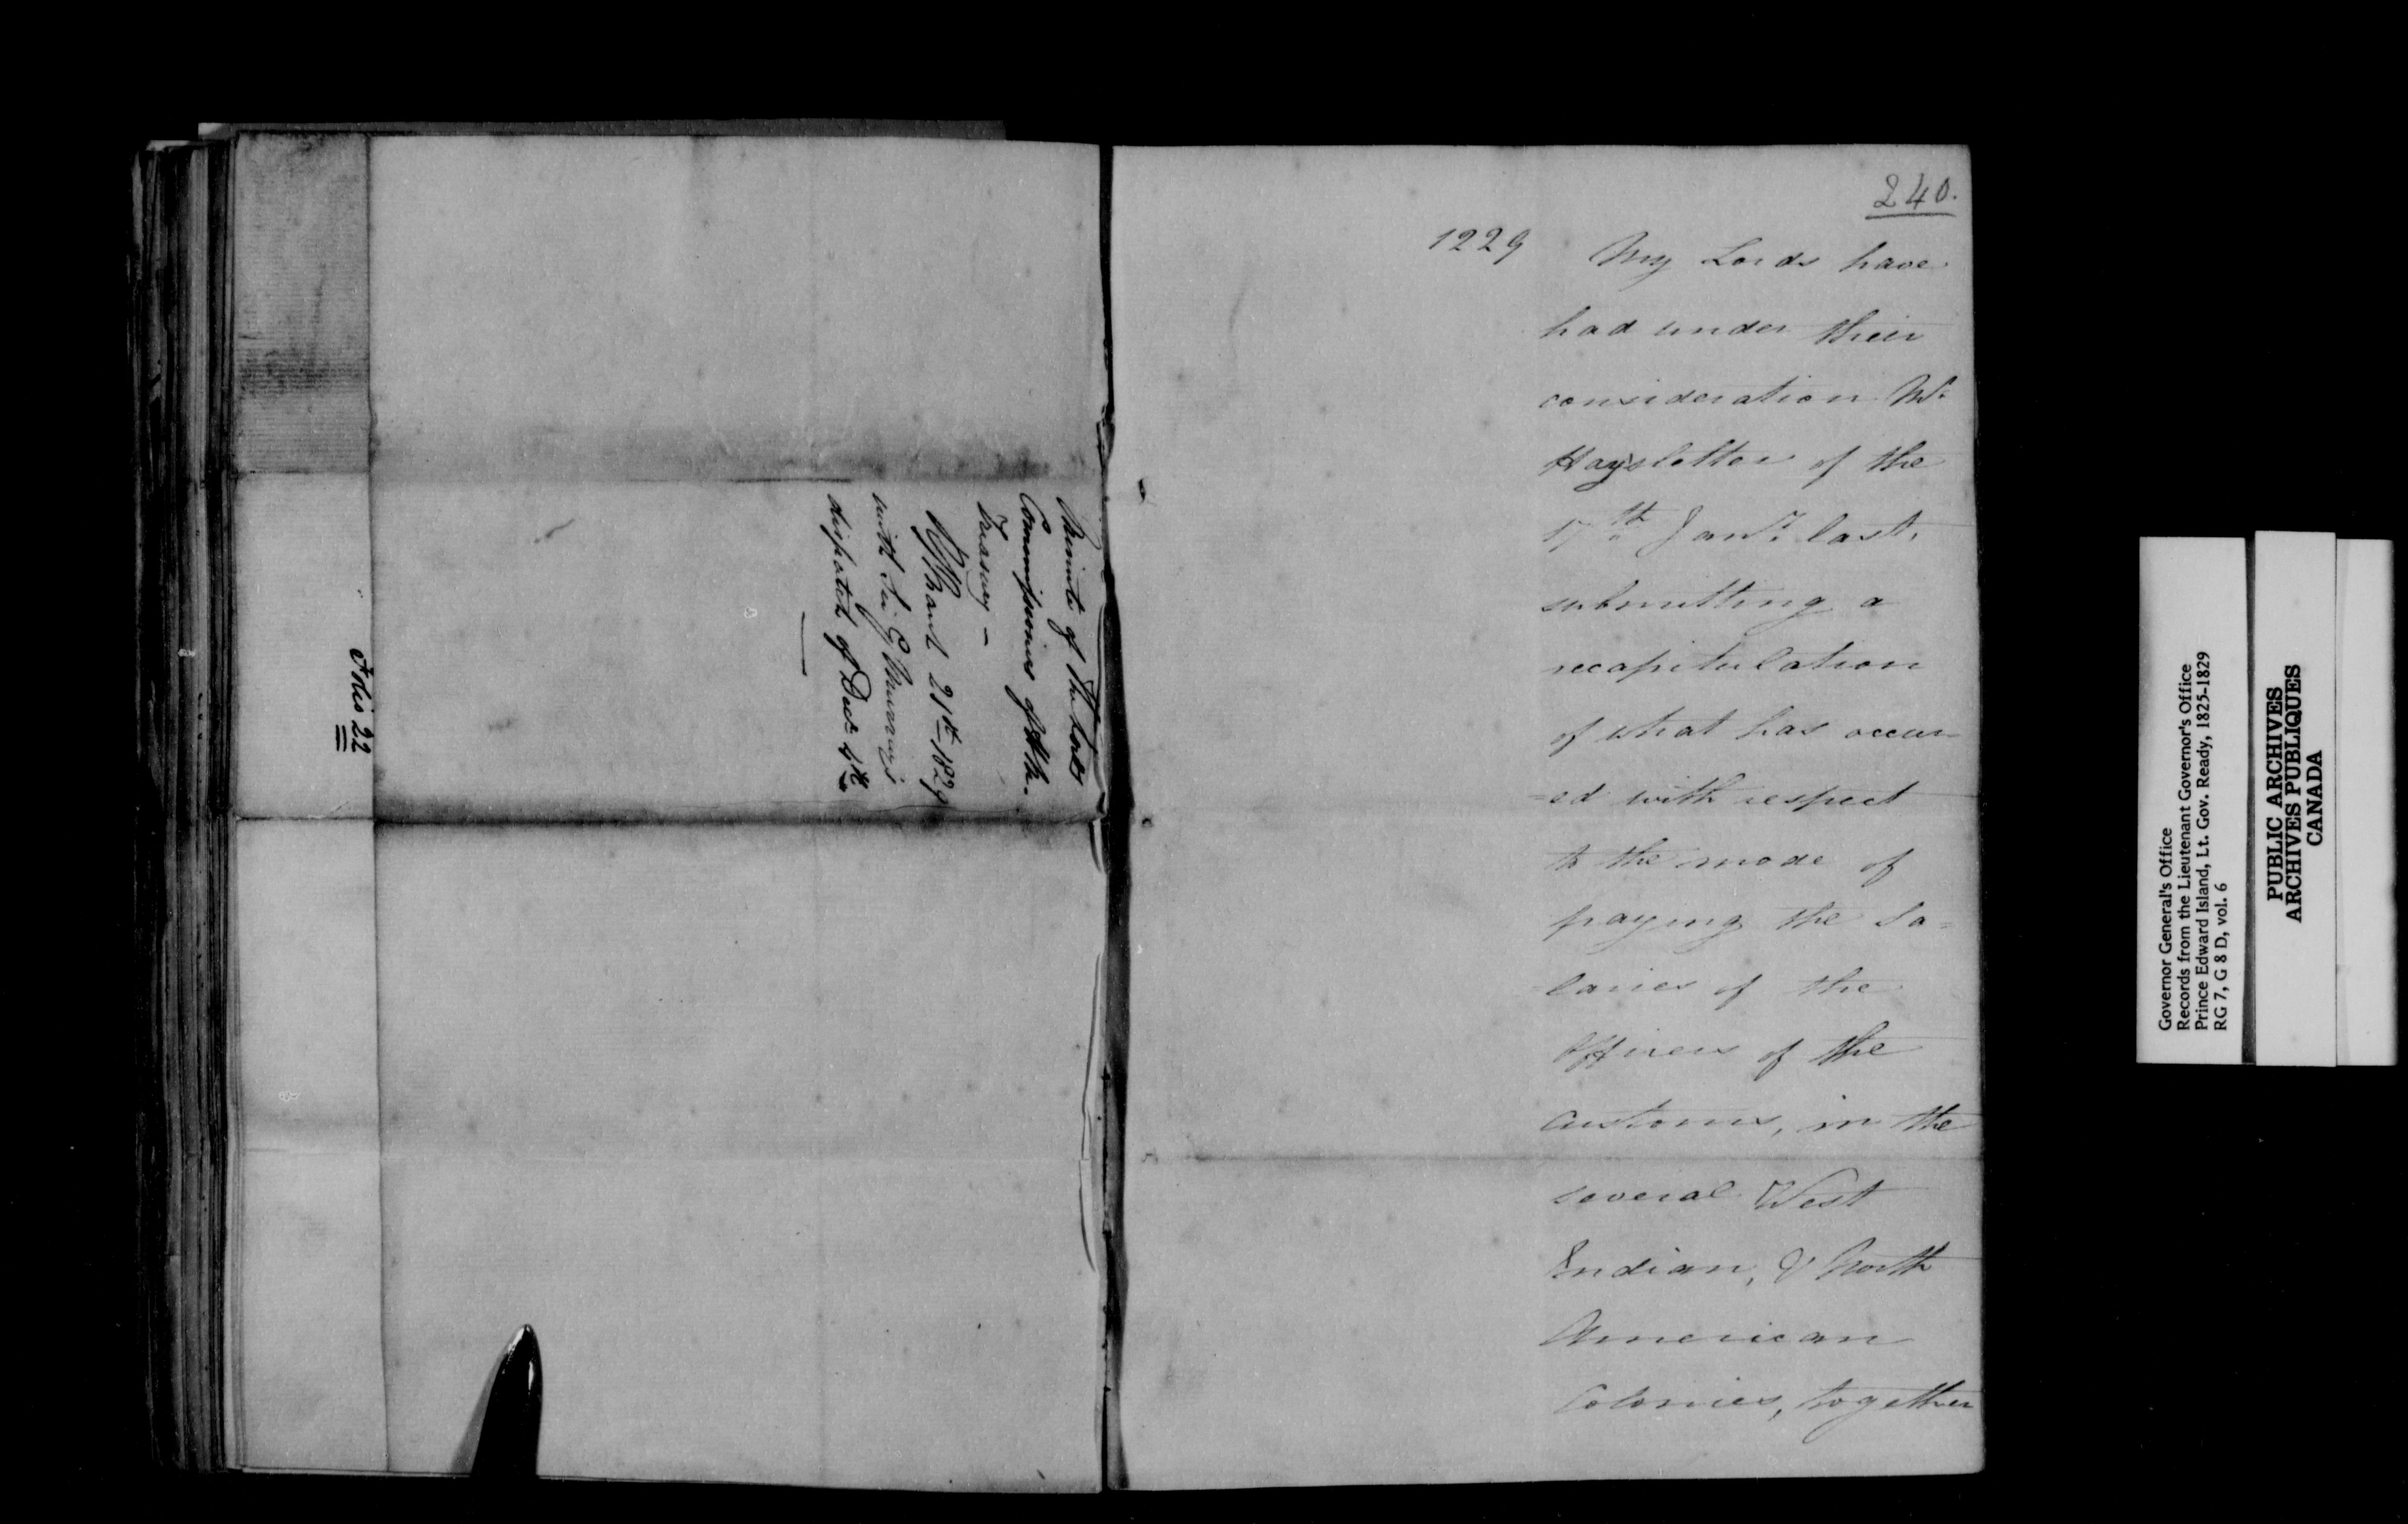 Minute of the Lords
Commissioners of the
Treasury –
March 21st 1829
with Sir G Murray's
dispatch of Decr 4th
Folio 22
240.
1229
My Lords have
had under their
consideration Mr
Hay's letter of the
17th Jany last,
submitting a
recapitulation
of what has occur-
-ed with respect
to the mode of
paying the Sa-
laries of the
Officers of the
Customs, in the
several West
Indian, & North
American
Colonies, together
Governor General's Office
Records from the Lieutenant Governor's Office
Prince Edward Island, Lt. Gov. Ready, 1825-1829
RG 7, G 8 D, vol. 6
PUBLIC ARCHIVES
ARCHIVES PUBLIQUES
CANADA